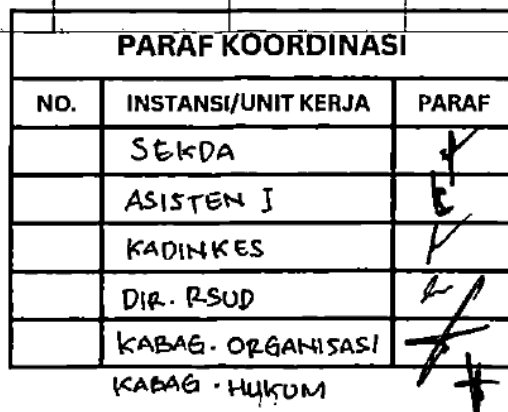 PARAF KOORDINASI
NO. INSTANSI/UNIT KERJA PARAF
SEKDA
ASISTEN I
KADINKES
DIR. RSUD
KABAG. ORGANISASI
KABAG. HUKUM